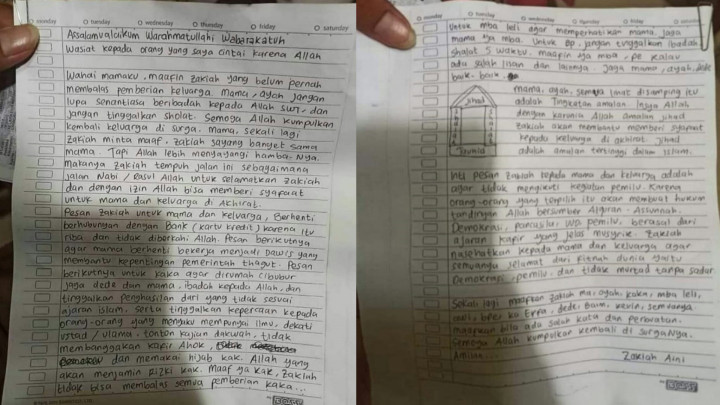 monday tuesday wednesday thursday friday saturday
Assalamualaikum Warahmatullahi Wabarakatuh
Wasiat kepada orang yang saya cintai karena Allah
Wahai mamaku, maafin Zakiah yang belum pernah
membalas pemberian keluarga. Mama, ayah jangan
lupa senantiasa beribadah kepada Allah SWT. dan
jangan tinggalkan sholat. Semoga Allah kumpulkan
kembali keluarga di surga. Mama, sekali lagi
Zakiah minta maaf. Zakiah sayang banget sama
mama. Tapi Allah lebih menyayangi hamba-Nya.
Makanya Zakiah tempuh jalan ini sebagaimana
jalan Nabi / Rasul Allah untuk selamatkan Zakiah
dan dengan izin Allah bisa memberi syafaat
untuk mama dan keluarga di Akhirat.
Pesan Zakiah untuk mama dan keluarga, Berhenti
berhubungan dengan Bank (kartu kredit) karena itu
riba dan tidak diberkahi Allah. Pesan berikutnya
agar mama berhenti bekerja menjadi Dawis yang
membantu kepentingan pemerintah thagut. Pesan
berikutnya untuk kaka agar dirumah cibubur
jaga dede dan mama, ibadah kepada Allah, dan
tinggalkan penghasilan dari yang tidak sesuai
ajaran Islam, serta tinggalkan kepercaan kepada
orang-orang yang mengaku mempunyai ilmu, dekati
ustad / ulama. tonton kajian dakwah, tidak
membanggakan kafir Ahok,
dan memakai hijab kak. Allah yang
akan menjamin Rizki kak. Maaf ya kak, Zakiah
tidak bisa membalas semua pemberian kaka...
monday tuesday wednesday thursday friday saturday
Untuk mba leli agar memperhatikan mama, jaga
mama ya mba. Untuk Bp. jangan tinggalkan ibadah,
Sholat 5 waktu. Maafin ya mba, pe kalau
ada salah lisan dan lainnya. Jaga mama, ayah, dede
baik-baik.
mama, ayah, semua lihat disamping itu
adalah Tingkatan amalan. Insya Allah
dengan karunia Allah amalan jihad
Zakiah akan membantu memberi syafaat
kepada keluarga di akhirat. Jihad
adalah amalan tertinggi dalam Islam.
Jihad
Dunia
Inti pesan Zakiah kepada mama dan keluarga adalah
agar tidak mengikuti kegiatan pemilu. Karena
orang-orang yang terpilih itu akan membuat hukum
tandingan Allah bersumber Alquran - Assunnah.
Demokrasi, Pancasila, UUD, pemilu, berasal dari
ajaran kafir yang jelas musyrik. Zakiah
nasehatkan kepada mama dan keluarga agar
semuanya selamat dari fitnah dunia yaitu
Demokrasi, pemilu dan tidak murtad tanpa sadar
Sekali lagi maafkan Zakiah ma, ayah, kaka, mba leli,
bude, semuanya
maafkan bila ada salah kata dan perbuatan.
Semoga Allah kumpulkan kembali di surgaNya.
Amiin...
Zakiah Aini